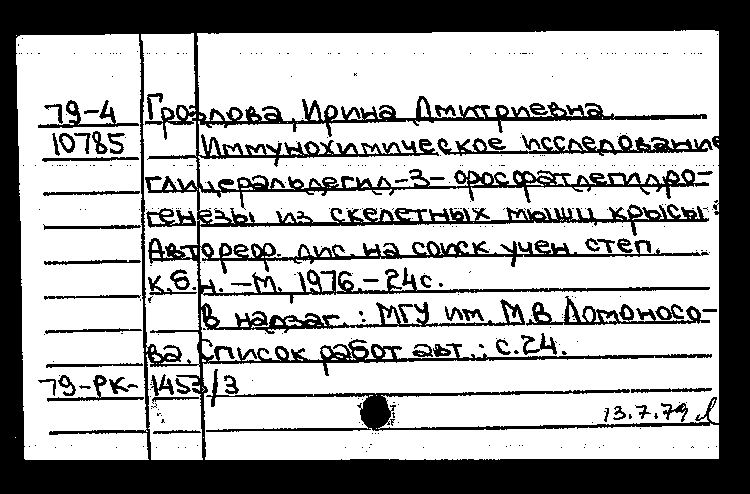 79-4 Грозлова, Ирина Дмитриевна.
10785 Иммунохимическое исследование
глицеральдегид-3-фосфатдегидро-
генезы из скелетных мышц крысы:
Автореф. дис. на соиск. учен. степ.
к.б.н. -М., 1976. -24с.
В надзаг.: МГУ им. М.В Ломоносо-
ва. Список работ авт.: с.24.
79-РК- 1453/3
13.7.79